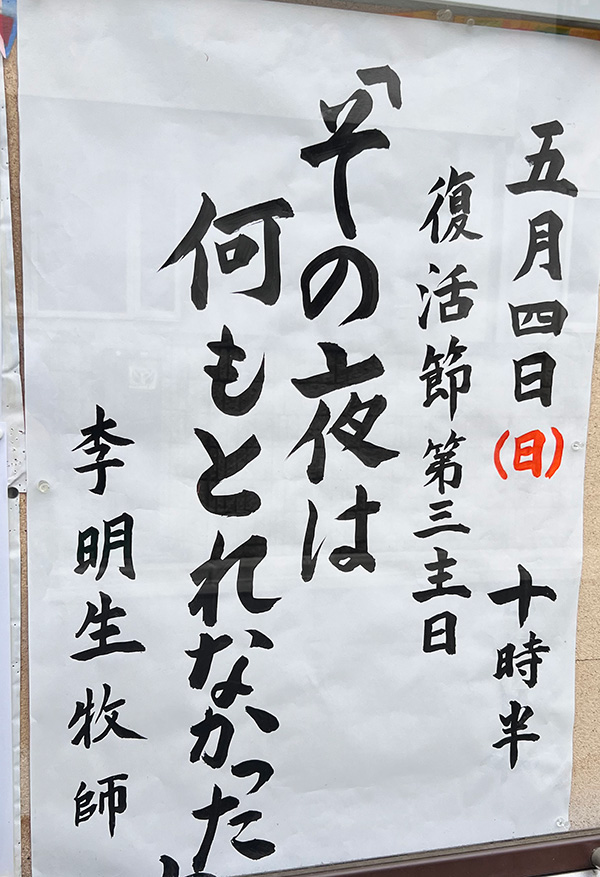 五月四日(日) 十時半
復活節第三主日
「その夜は
何もとれなかった
李明生牧師